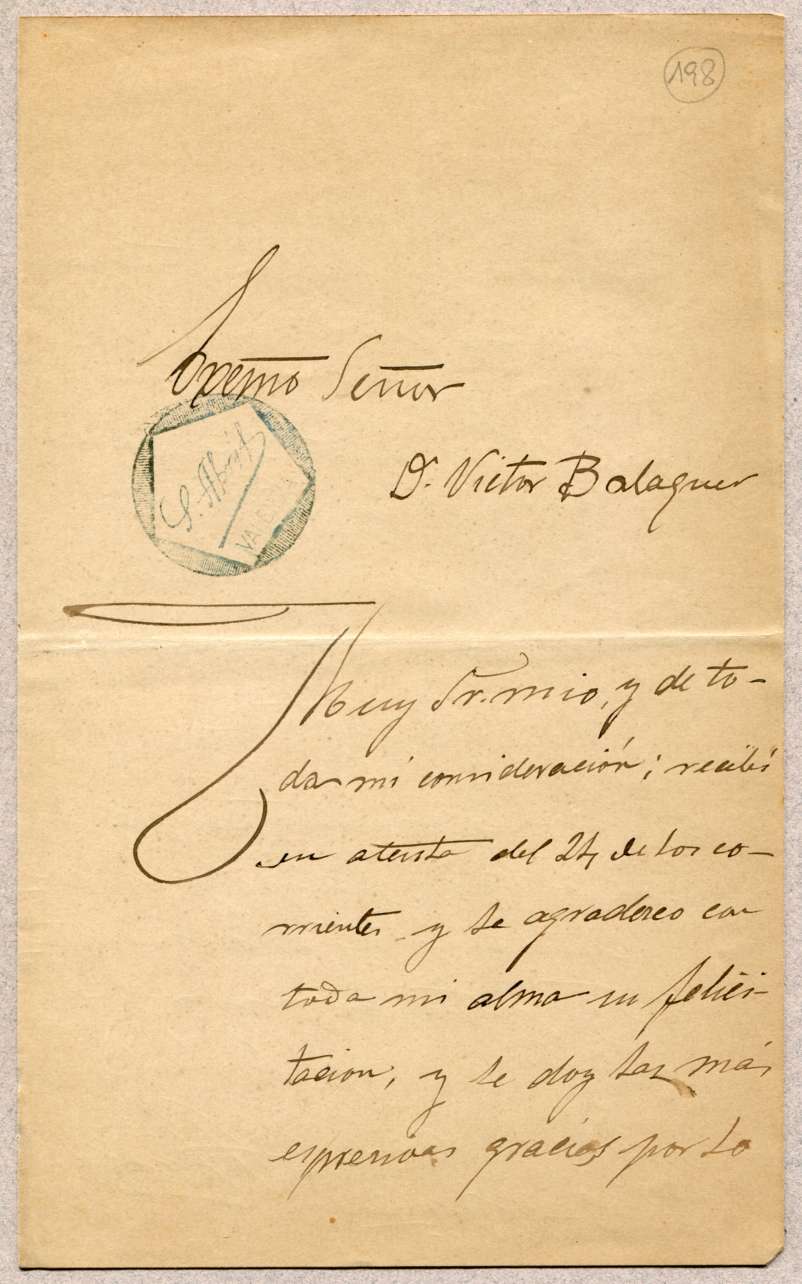 198
Excmo Señor
S. Abril
VALENCIA
D. Victor Balaguer
Muy Sr. mio, y de to-
da mi consideración; recibí
su atenta del 24, de los co-
rrientes y le agradezco con
toda mi alma su felici-
tacion, y le doy las más
espresivas gracias por lo